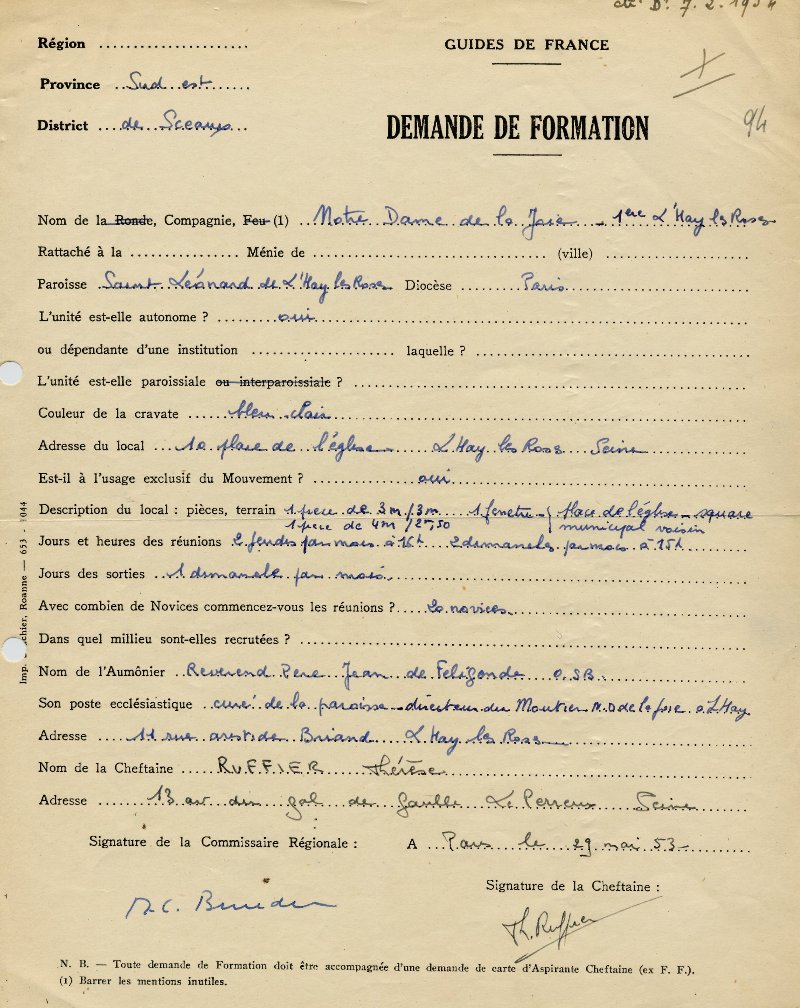 7. 2. 1954
Région
GUIDES DE FRANCE
Province Sud est
District de Sceaux
94
DEMANDE DE FORMATION
Nom de la Ronde, Compagnie, Feu (1) Notre Dame de la Joie - 1ère L'Hay les Roses
Rattaché à la Ménie de (ville)
Paroisse Saint Léonard de L'Hay les Roses Diocèse Paris
L'unité est-elle autonome ? oui
ou dépendante d'une institution laquelle ?
L'unité est-elle paroissiale ou interparoissiale ?
Couleur de la cravate bleu clair
Adresse du local 10 place de l'église L'Hay les Roses Seine
Est-il à l'usage exclusif du Mouvement ? oui
Description du local : pièces, terrain 1 pièce de 3m/3m 1 fenetre - place de l'église - square
1 pièce de 4m/2m,50 municipal voisin
Jours et heures des réunions 2 jeudis par mois à 16h 2 dimanches par mois à 15h
Jours des sorties 1 dimanche par mois
Avec combien de Novices commencez-vous les réunions ? 20 novices
Dans quel millieu sont-elles recrutées ?
Nom de l'Aumônier Reverend Pere Jean de Feligonde O.S.B.
Son poste ecclésiastique curé de la paroisse - directeur du Moutier N.D de la Joie à L'Hay
Adresse 11 rue aristide Briand L'Hay les Roses
Nom de la Cheftaine RUFFIER Thérèse
Adresse 13 av du gal de Gaulle Le Perreux Seine
Signature de la Commissaire Régionale : A Paris le 29 mai 53
Signature de la Cheftaine :
Th. Ruffier
N. B. — Toute demande de Formation doit être accompagnée d'une demande de carte d'Aspirante Cheftaine (ex F. F.).
(1) Barrer les mentions inutiles.
Roanne — 653 - 1044